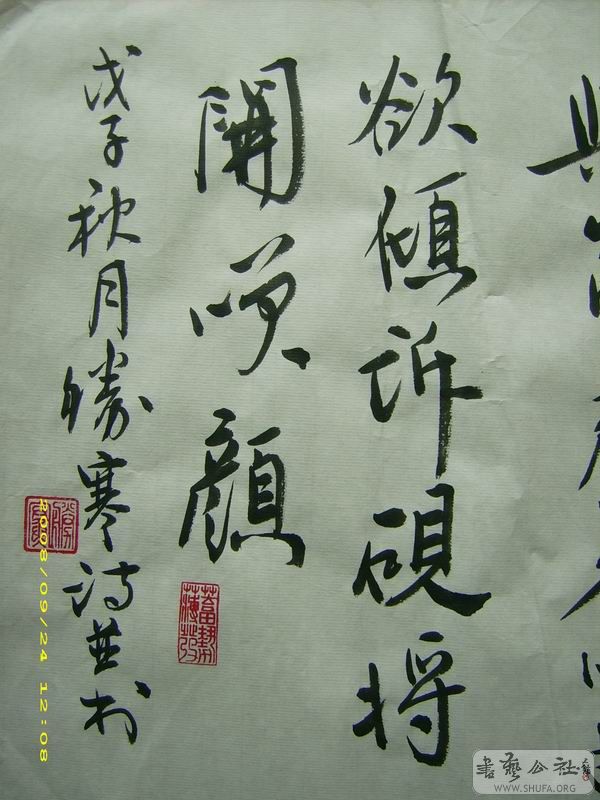 欲傾訴硯将
開咲顔
戊子秋月勝寒诗並书
蓄勢薄發
2008/09/24 12:08
書藝公社
WWW.SHUFA.ORG